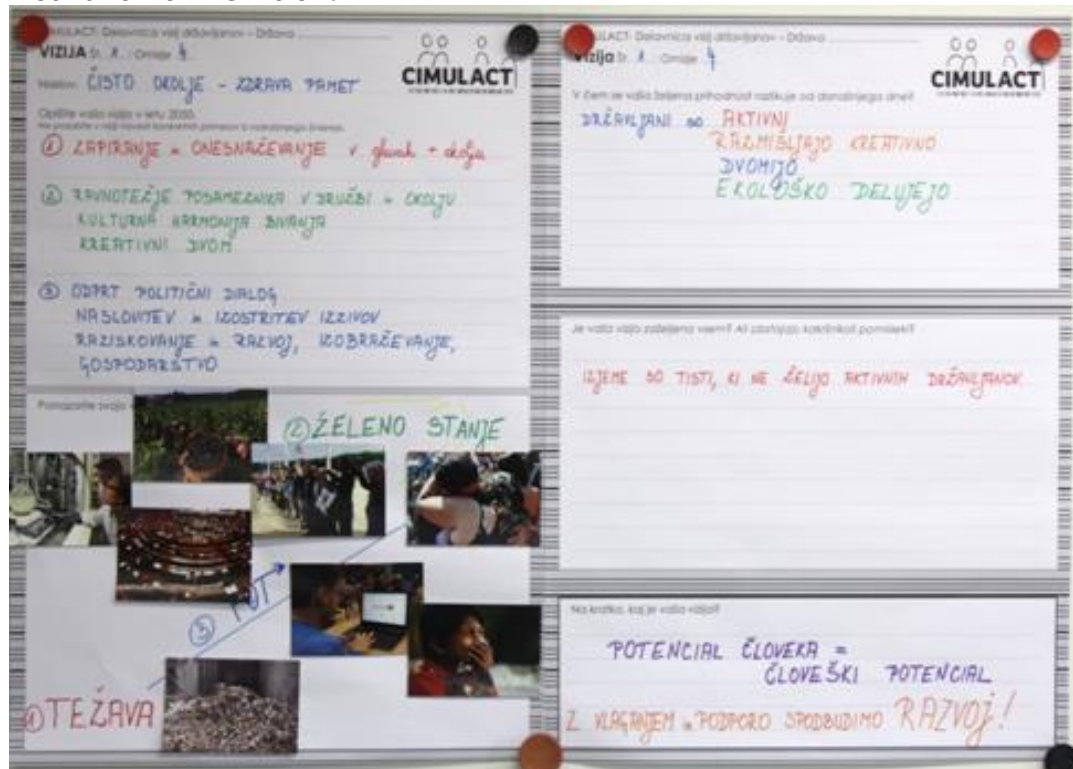 CIMULACT: Delavnica vizij državljanov – Država
VIZIJA št. 1 Omizje 4
CIMULACT
Naslov: ČISTO OKOLJE - ZDRAVA PAMET
Opišite vašo vizijo v letu 2050.
① ZAPIRANJE in ONESNAČEVANJE v glavah + okolju
② RAVNOTEŽJE POSAMEZNIKA V DRUŽBI in OKOLJU
KULTURNA HARMONIJA BIVANJA
KREATIVNI DVOM
③ ODPRT POLITIČNI DIALOG
NASLOVITEV in IZOSTRITEV IZZIVOV
RAZISKOVANJE in RAZVOJ, IZOBRAČEVANJE,
GOSPODARSTVO
Ponazorite svojo
② ŽELENO STANJE
③ POT
① TEŽAVA
CIMULACT: Delavnica vizij državljanov – Država
Vizija št. 1 Omizje 4
CIMULACT
V čem se vaša želena prihodnost razlikuje od današnjega dne?
DRŽAVLJANI so AKTIVNI
RAZMIŠLJAJO KREATIVNO
DVOMIJO
EKOLOŠKO DELUJEJO
Je vaša vizija zaželena vsem? Ali obstajajo kakršnikoli pomisleki?
IZJEME SO TISTI, KI NE ŽELIJO AKTIVNIH DRŽAVLJANOV
Na kratko, kaj je vaša vizija?
POTENCIAL ČLOVEKA =
ČLOVEŠKI POTENCIAL
Z VLAGANJEM in PODPORO SPODBUDIMO RAZVOJ!